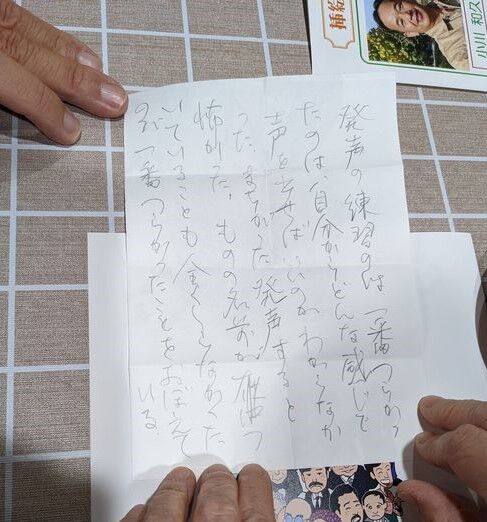 発声の練習のは一番つらかっ
たのは、自分からどんな感じで
声を出せばいいのかわからなか
った。まちがった発声すると
怖かった。ものの名前が
いていることも全くしなかった
のが一番つらかったことをおぼえて
いる。
挿絵
小川 和久